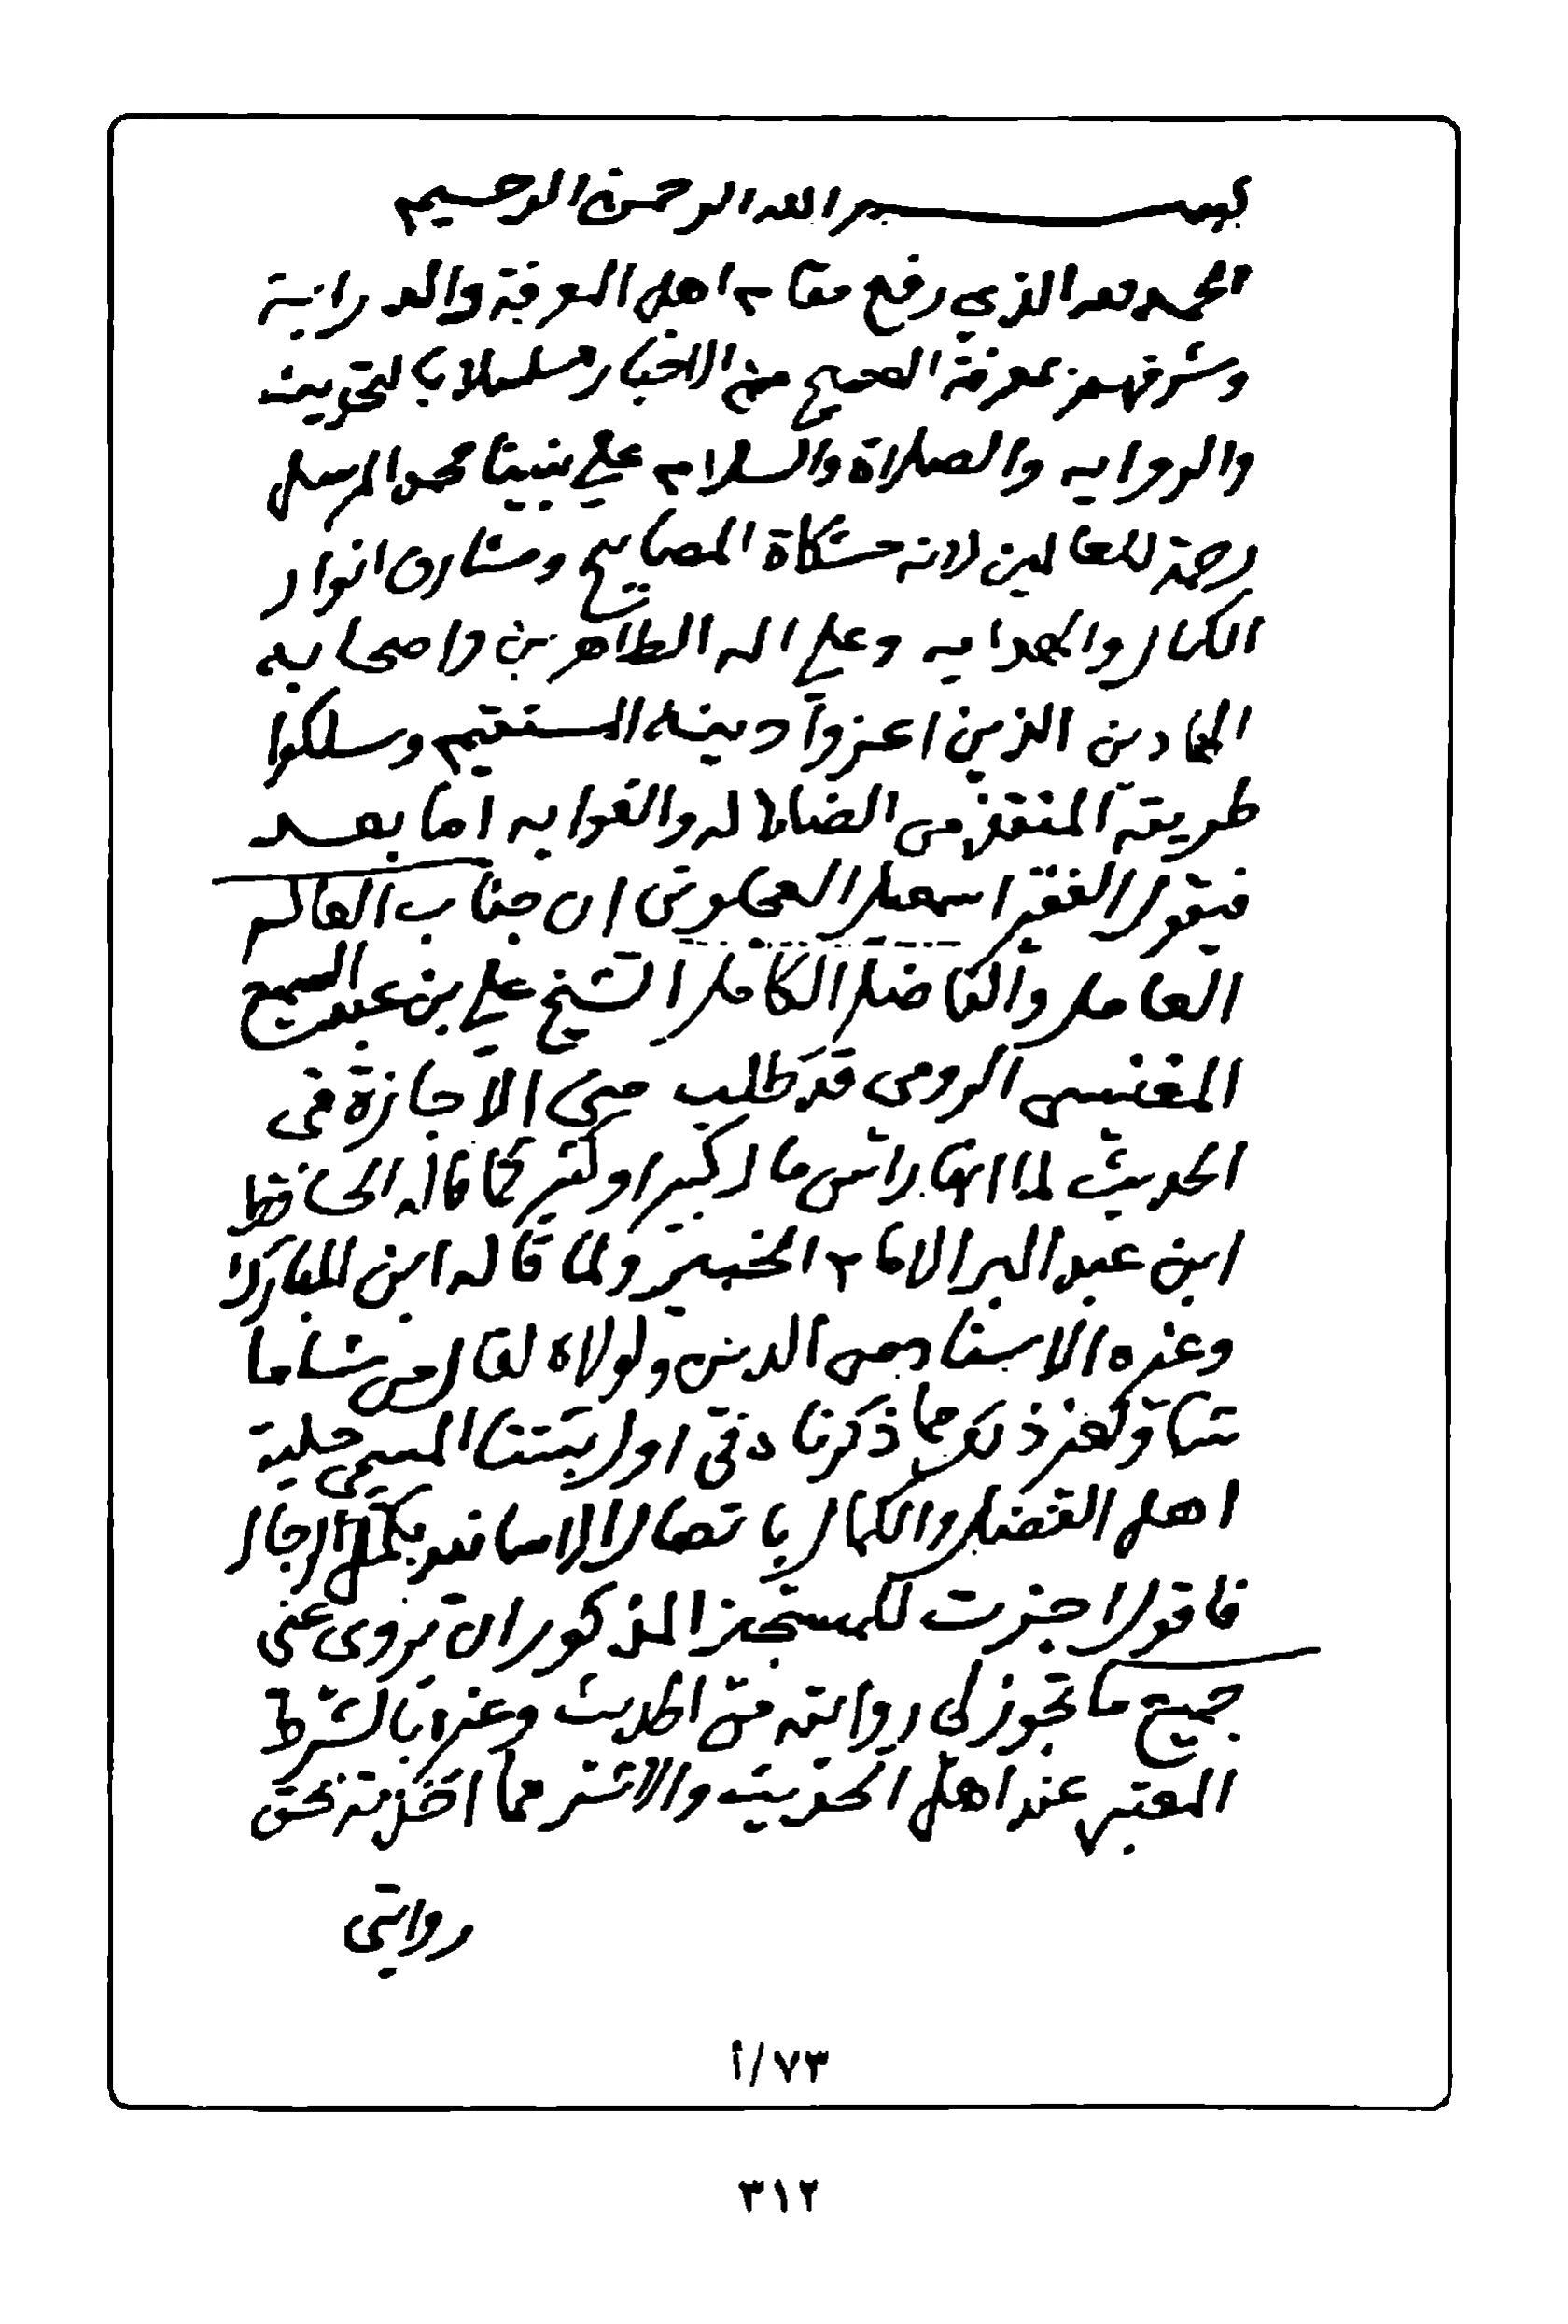 بسم الله الرحمن الرحيم
الحمد لله الذي رفع مقام اهل المعرفة والدراية
وشرفهم بمعرفة الصحيح من الاخبار مسلسلا بالتحديث
والرواية والصلاة والسلام على نبينا محمد المرسل
رحمة للعالمين لانه مشكاة المصابيح ومشارق انوار
الكمال والهداية وعلى اله الطاهرين واصحابه
الهادين الذين اعزوا دينه المستقيم وسلكوا
طريقة المنقذ من الضلالة والغواية اما بعد
فيقول الفقير اسمعيل العجلوني ان جناب العالم
العامل والفاضل الكامل الشيخ علي بن عبد السميع
المغنسي الرومي قد طلب مني الاجازة في
الحديث لما انها راس مال كبير او كثير كما قاله الحافظ
ابن عبد البر الامام الخبير ولما قاله ابن المبارك
وغيره الاسناد من الدين ولولاه لقال من شاء ما
شاء ولغير ذلك مما ذكرناه في اوائل ثبتنا المسمى حلية
اهل الفضل والكمال باتصال الاسانيد بكمل الرجال
فاقول اجزت للمستجيز المذكور ان يروى عني
جميع ما تجوز لي روايته من الحديث وغيره بالشرط
المعتبر عند اهل الحديث والاثر مما اخذته بحق
روايتي
٧٣/أ
٣١٢